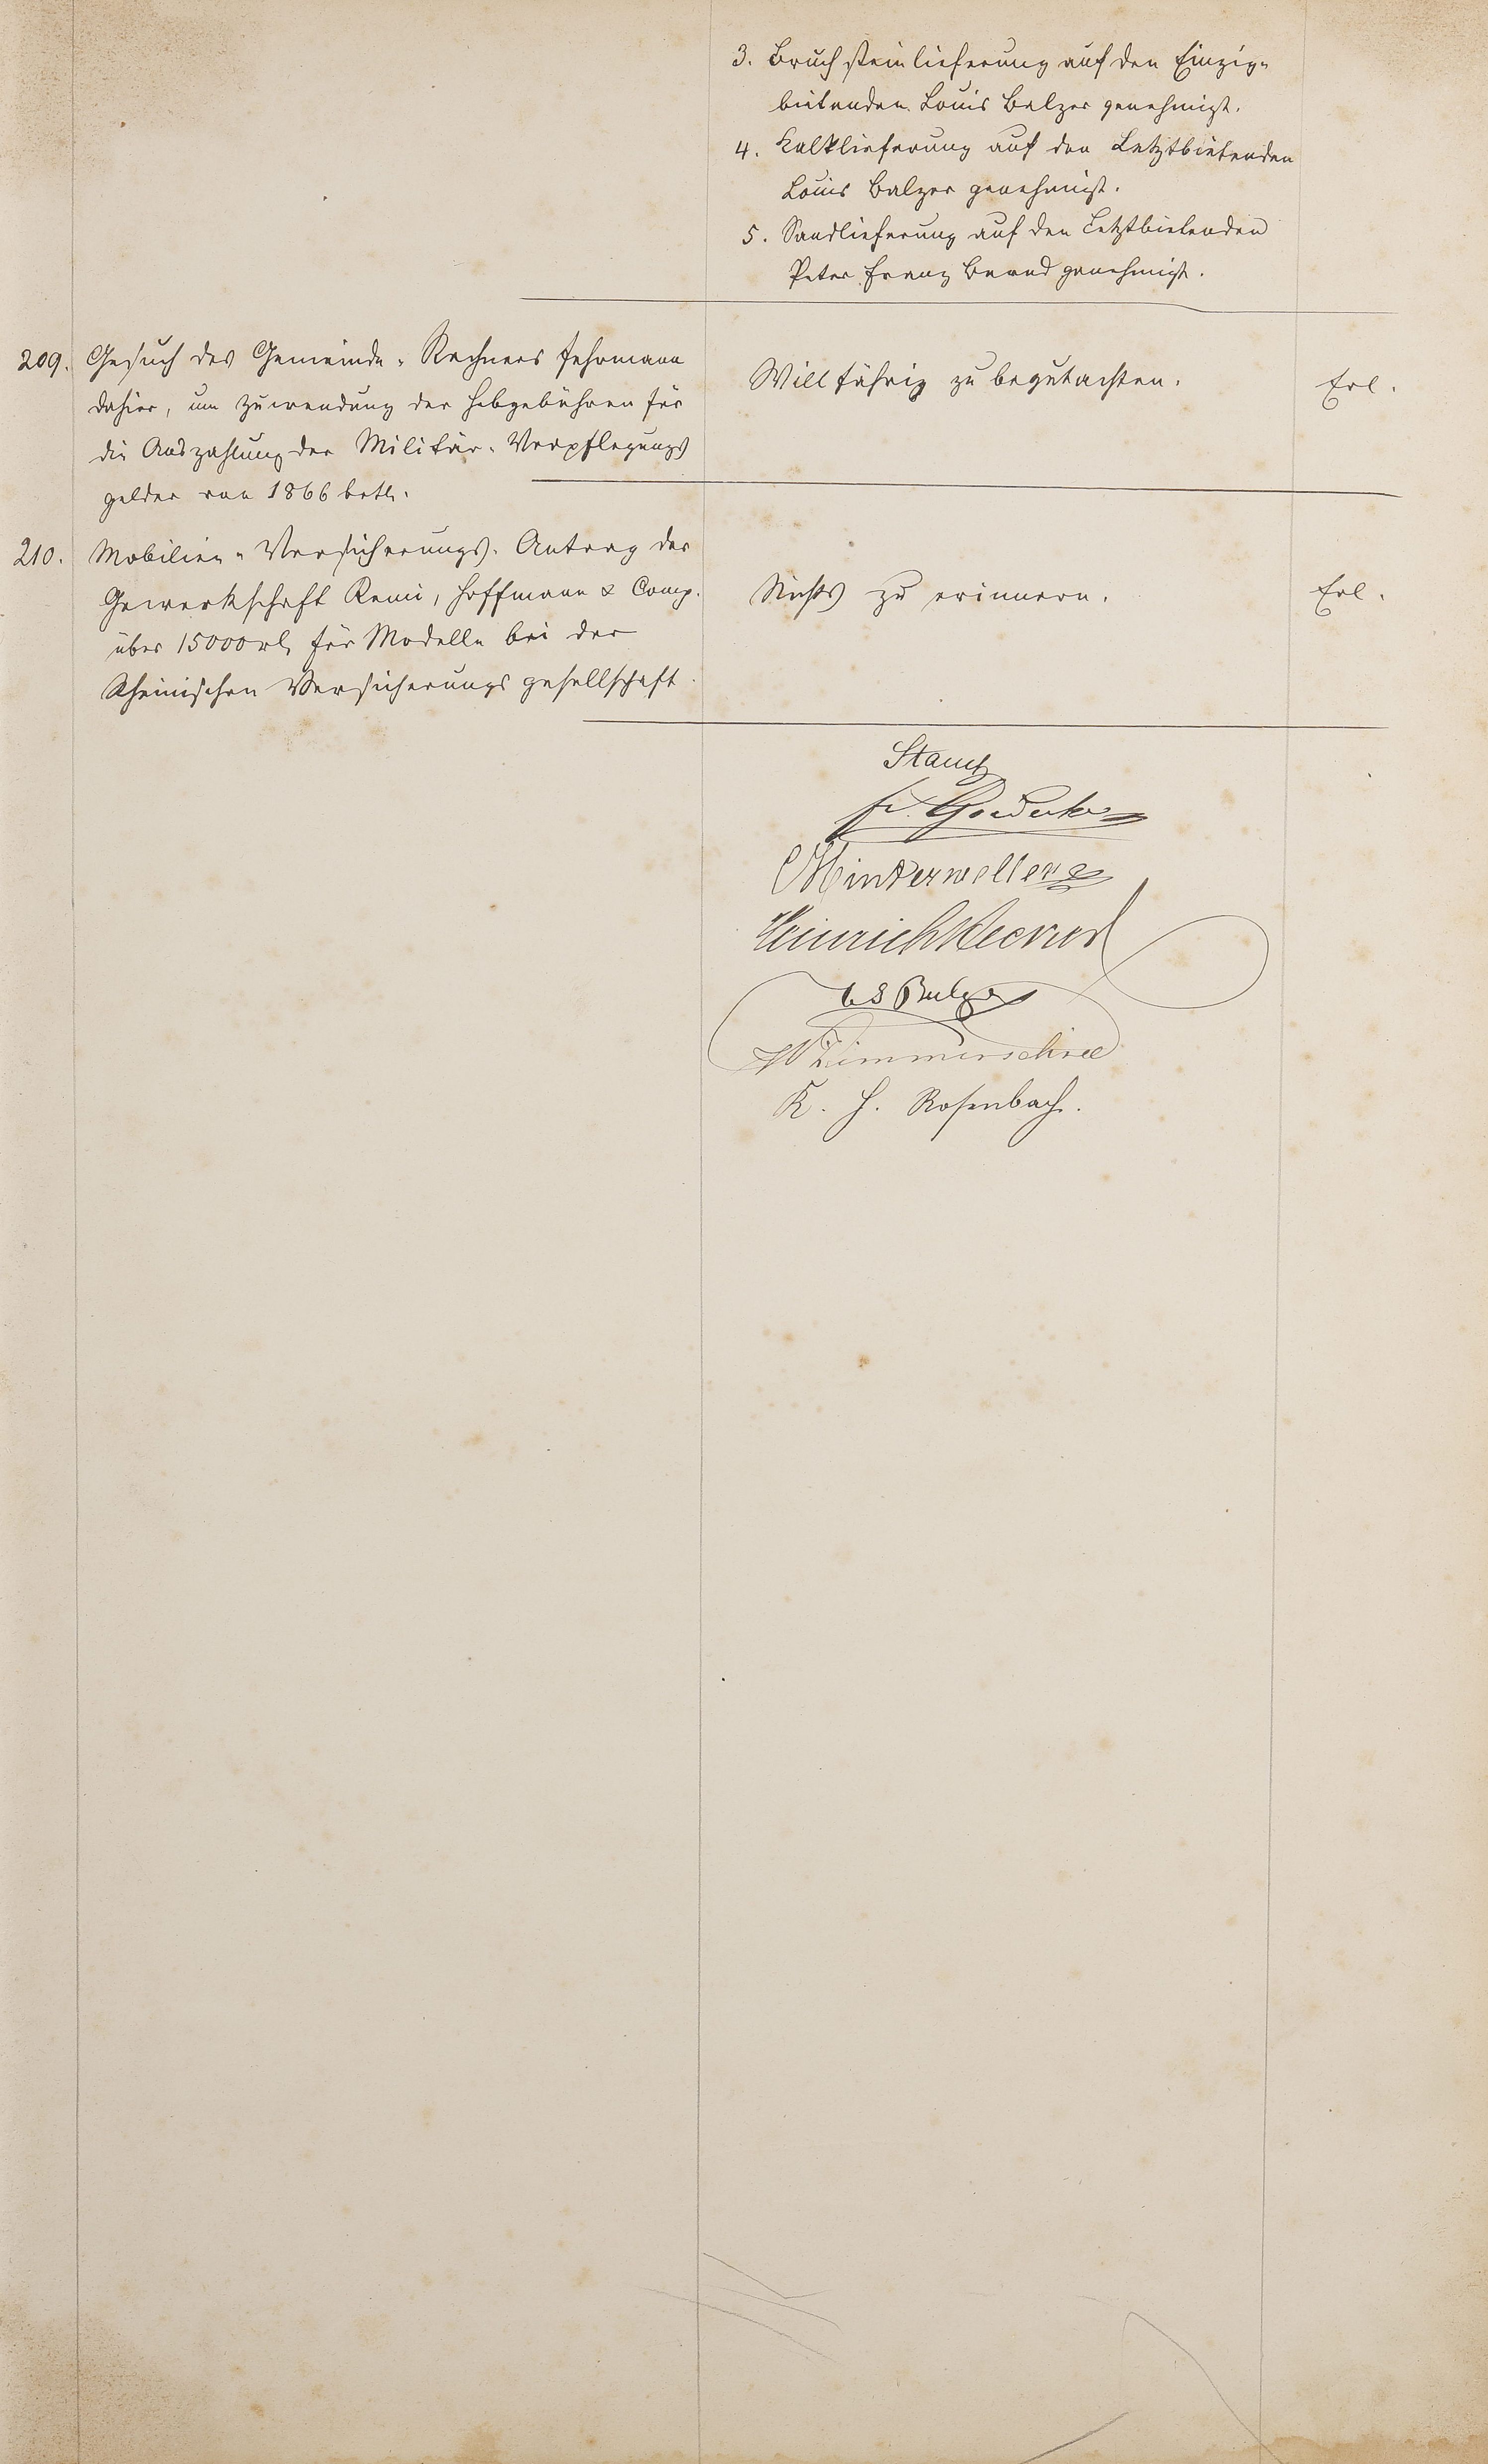 3. Bruchsteinlieferung auf den Einzig-
bietenden Louis Balzer genehmigt.
4. Kalklieferung auf den Letztbietenden
Louis Balzer genehmigt.
5. Sandlieferung auf den Letztbietenden
Peter Franz Bernd genehmigt.
209. Gesuch des Gemeinde-Rechners Fehrmann
dahier, um Zuwendung der Hebgebühren für
die Auszahlung der Militär-Verpflegungs
gelder von 1866 betr.
Willfährig zu begutachten.
Erl.
210. Mobilien-Versicherungs-Antrag der
Gewerkschaft Remi, Hoffmann & Comp.
über 15000 rl, für Modelle bei der
Rheinischen Versicherungsgesellschaft
Nichts zu erinnern.
Erl.
Fr. Goedecke
Heinrich
Balzer
Zimmerschied
K. H. Rosenbach.